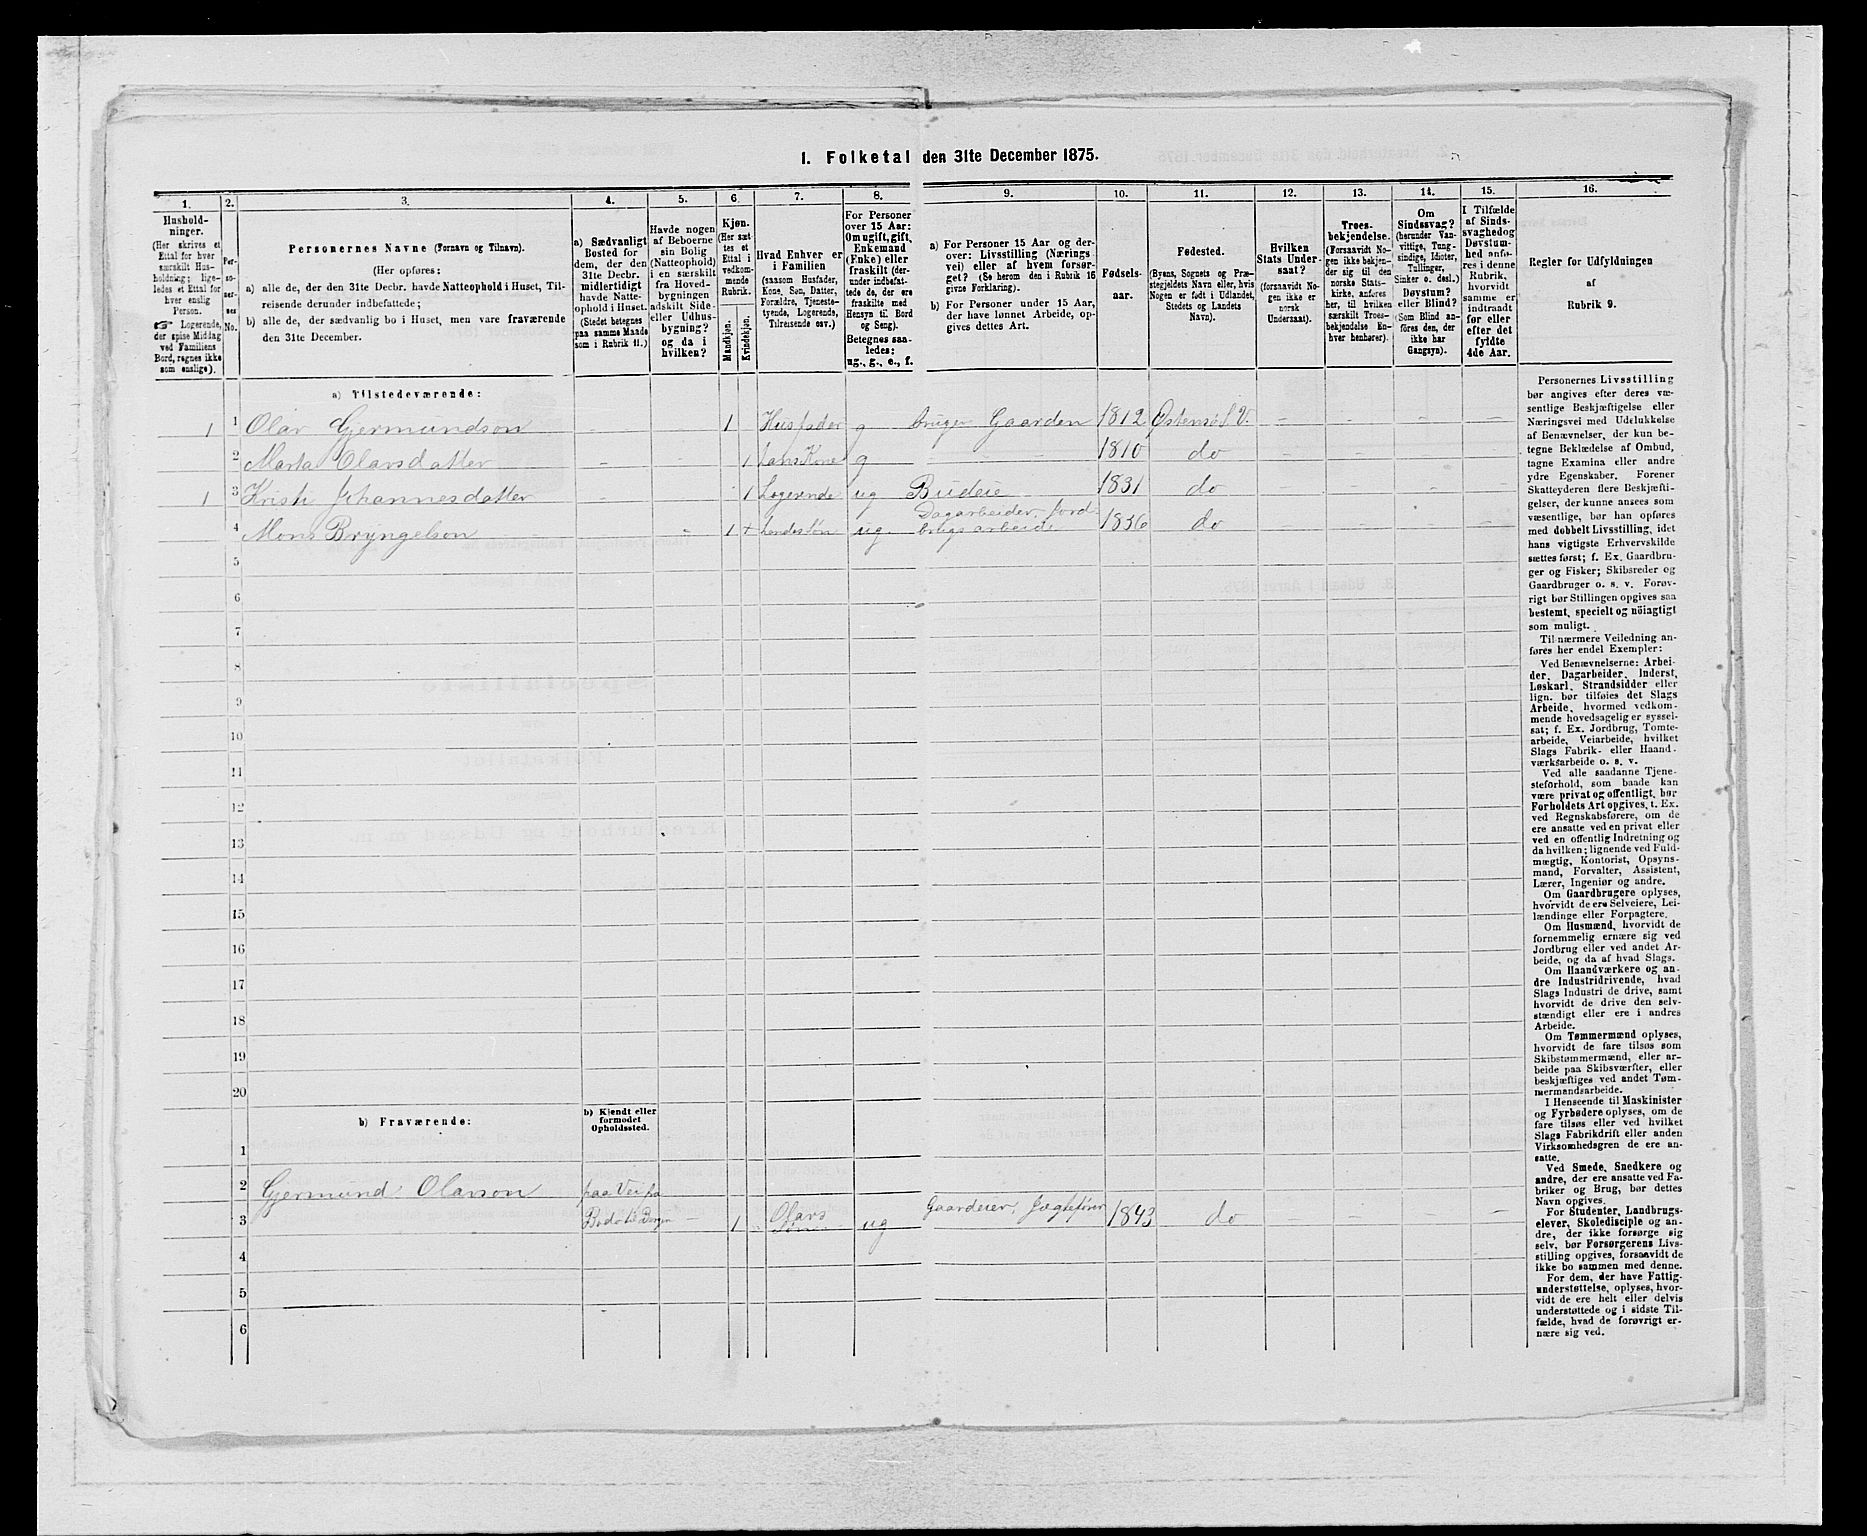 I. Folketal den 31te December 1875.
1. 2. 3. 4. 5. 6. 7. 8. 9. 10. 11. 12. 13. 14. 15. 16.
Hushold-
ninger.
(Her skrives et
Ettal for hver
særskilt Hus-
holdning; lige-
ledes et Ettal for
hver enslig
Person.
Logerende,
der spise Middag
ved Familiens
Bord, regnes ikke
som enslige).
Per-
so-
ner-
nes
No.
Personernes Navne (Fornavn og Tilnavn).
(Her opføres:
a) alle de, der den 31te Decbr. havde Natteophold i Huset, Til-
reisende derunder indbefattede;
b) alle de, der sædvanlig bo i Huset, men vare fraværende
den 31te December.
a) Sædvanligt
Bosted for
dem, der den
31te Decbr.
midlertidigt
havde Natte-
ophold i Huset.
(Stedet betegnes
paa samme Maade
som i Rubrik 11.)
Havde nogen
af Beboerne
sin Bolig
(Natteophold)
i en særskilt
fra Hoved-
bygningen
adskilt Side-
eller Udhus-
bygning?
og da i
hvilken?
Kjøn.
(Her sæt-
tes et
Ettal i
vedkom-
mende
Rubrik.
Mandkjøn.
Kvindekjøn.
Hvad Enhver er
i Familien
(saasom Husfader,
Kone, Søn, Datter,
Forældre, Tjeneste-
tyende, Logerende,
Tilreisende osv.)
For Personer
over 15 Aar:
Om ugift, gift,
Enkemand
(Enke) eller
fraskilt (der-
under indbefat-
tede de, der ere
fraskilte med
Hensyn til Bord
og Seng).
Betegnes saa-
ledes:
ug., g., e., f.
a) For Personer 15 Aar og der-
over: Livsstilling (Nærings-
vei) eller af hvem forsør-
get? (Se herom den i Rubrik 16
givne Forklaring).
b) For Personer under 15 Aar,
der have lønnet Arbeide, op-
gives dettes Art.
Fødsels-
aar.
Fødested.
(Byens, Sognets og Præ-
stegjeldets Navn eller, hvis
Nogen er født i Udlandet,
Stedets og Landets
Navn).
Hvilken
Stats Under-
saat?
(forsaavidt No-
gen ikke er
norsk
Undersaat).
Troes-
bekjendelse.
(Forsaavidt No-
gen ikke bekjen-
der sig til den
norske Stats-
kirke, anføres
her, til hvilken
særskilt Troes-
bekjendelse En-
hver henhører).
Om
Sindssvag?
(herunder Van-
vittige, Tung-
sindige, Idioter,
Tullinger,
Sinker o. desl.)
Døvstum?
eller Blind?
(Som Blind an-
føres den, der
ikke har
Gangsyn).
I Tilfælde
af Sinds-
svaghed og
Døvstum-
hed anfø-
res i denne
Rubrik,
hvorvidt
samme er
indtraadt
før eller
efter det
fyldte
4de Aar.
Regler for Udfyldningen
af
Rubrik 9.
a) Tilstedeværende:
1 1 Olav Gjermundson - - 1 Husfader g bruger Gaarden 1812 Østensø S. V. - - - -
2 Marta Olavsdatter - - 1 hans Kone g - - - 1810 do - - - -
1 3 Kristi Johannesdatter - - 1 Logerende ug Budeie 1831 do - - - -
4 Mons Bryngelson - 1 + ug. Dagarbeider, jord-
brugsarbeide 1836 do - - - -
5
6
7
8
9
10
11
12
13
14
15
16
17
18
19
20
b) Fraværende:
b) Kjendt eller
formodet
Opholdssted.
1
2 Gjermund Olavson paa Vei fra
3 Bodø til Bergen - 1 Olavs
Søn ug Gaardeier, Jægtefører 1843 do - - - -
4
5
6
Personernes Livsstilling
bør angives efter deres væ-
sentlige Beskjæftigelse eller
Næringsvei med Udelukkelse
af Benævnelser, der kun be-
tegne Beklædelse af Ombud,
tagne Examina eller andre
ydre Egenskaber. Forener
Skatteyderen flere Beskjæfti-
gelser, der kunne ansees som
væsentlige, bør han opføres
med dobbelt Livsstilling, idet
hans vigtigste Erhvervskilde
sættes først; f. Ex. Gaardbru-
ger og Fisker; Skibsreder og
Gaardbruger o. s. v. Forøv-
rigt bør Stillingen opgives saa
bestemt, specielt og nöiagtigt
som muligt.
Til nærmere Veiledning an-
føres her endel Exempler:
Ved Benævnelserne: Arbei-
der, Dagarbeider, Inderst,
Løskarl, Strandsidder eller
lign. bør tilføies det Slags
Arbeide, hvormed vedkom-
mende hovedsagelig er syssel-
sat; f. Ex. Jordbrug, Tomte-
arbeide, Veiarbeide, hvilket
Slags Fabrik- eller Haand-
værksarbeide o. s. v.
Ved alle saadanne Tjene-
steforhold, som baade kan
være privat og offentligt, bør
Forholdets Art opgives, t. Ex.
ved Regnskabsførere, om de
ere ansatte ved en privat eller
ved en offentlig Indretning og
da hvilken; lignende ved Fuld-
mægtig, Kontorist, Opsyns-
mand, Forvalter, Assistent,
Lærer, Ingeniør og andre.
Om Gaardbrugere oplyses,
hvorvidt de ere Selveiere, Lei-
lændinge eller Forpagtere.
Om Husmænd, hvorvidt de
fornemmelig ernære sig ved
Jordbrug eller ved andet Ar-
beide, og da af hvad Slags.
Om Haandværkere og an-
dre Industridrivende, hvad
Slags Industri de drive, samt
hvorvidt de drive den selv-
stændigt eller ere i andres
Arbeide.
Om Tømmermænd oplyses,
hvorvidt de fare tilsøs som
Skibstømmermænd, eller ar-
beide paa Skibsværfter, eller
beskjæftiges ved andet Tøm-
mermandsarbeide.
I Henseende til Maskinister
og Fyrbødere oplyses, om de
fare tilsøs eller ved hvilket
Slags Fabrikdrift eller anden
Virksomhedsgren de ere an-
satte.
Ved Smede, Snedkere og
andre, der ere ansatte ved Fa-
briker og Brug, bør dettes
Navn opgives.
For Studenter, Landbrugs-
elever, Skoledisciple og an-
dre, der ikke forsørge sig
selv, bør Forsørgerens Livs-
stilling opgives, forsaavidt de
ikke bo sammen med denne.
For dem, der have Fattig-
understøttelse, oplyses, hvor-
vidt de ere helt eller delvis
understøttede og i sidste Til-
fælde, hvad de forøvrigt er-
nære sig ved.